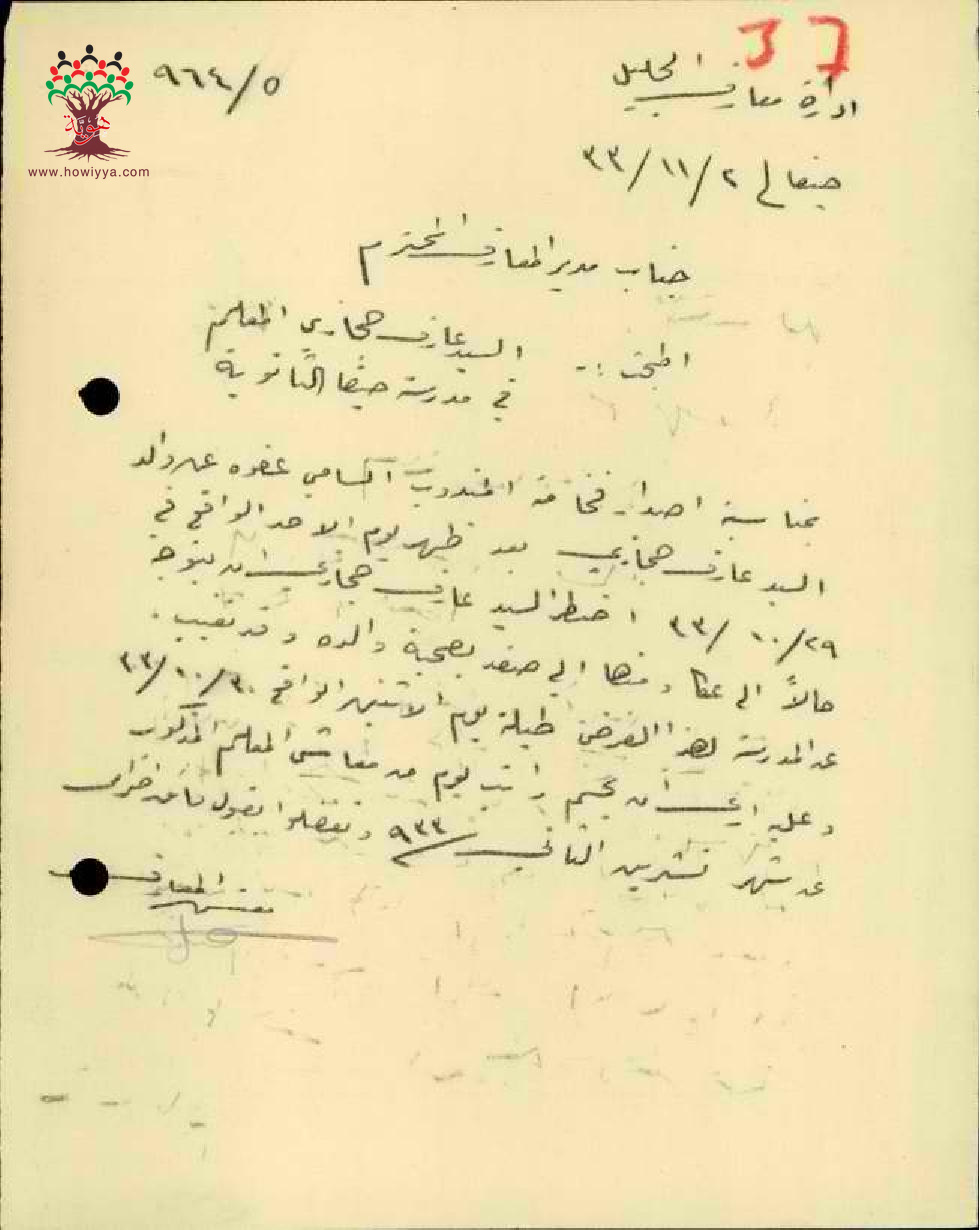 37
ادارة معارف الجليل
٩٦٤/٥
هوية
www.howiyya.com
حيفا في ٢/١١/٣٣
جناب مدير المعارف المحترم
المبحث :- السيد عارف حجازي المعلم
في مدرسة حيفا الثانوية
بمناسبة اصدار فخامة المندوب السامي عفوه عن والد
السيد عارف حجازي بعد ظهر يوم الاحد الواقع في
٢٩/١٠/٣٣ اضطر السيد عارف حجازي ان يتوجه
حالاً الى عكا ومنها الى صفد بصحبة والده وقد تغيب
عن المدرسة لهذا الغرض طيلة يوم الاثنين الواقع ٣٠/١٠/٣٣
وعليه ارى ان يحسم راتب يوم من معاش المعلم المذكور
عن شهر تشرين الثاني ٩٣٣ وتفضلوا بقبول فائق احترامي
مفتش المعارف